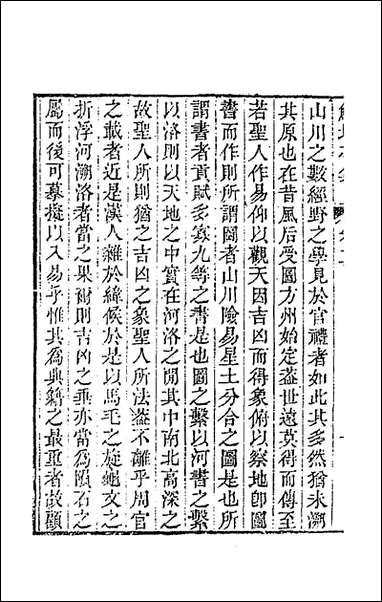 山川之數經野之學見於官禮者如此其多然猶未溯
其原也在昔風后受圖方州始定葢世遠莫得而傳至
若聖人作易仰以觀天因吉凶而得象俯以察地卽圖
書而作則所謂圖者山川險易星土分合之圖是也所
謂書者貢賦多寡九等之書是也圖之繫以河書之繫
以洛則以天地之中實在河洛之間其中南北高深之
故聖人所則猶之吉凶之象聖人所法葢不離乎周官
之載者近是漢人雜於緯候於是以馬毛之旋龜文之
折浮河溯洛者當之果爾則吉凶之垂亦當爲隕石之
屬而後可摹擬以入易乎惟其爲典籍之最重者故顧